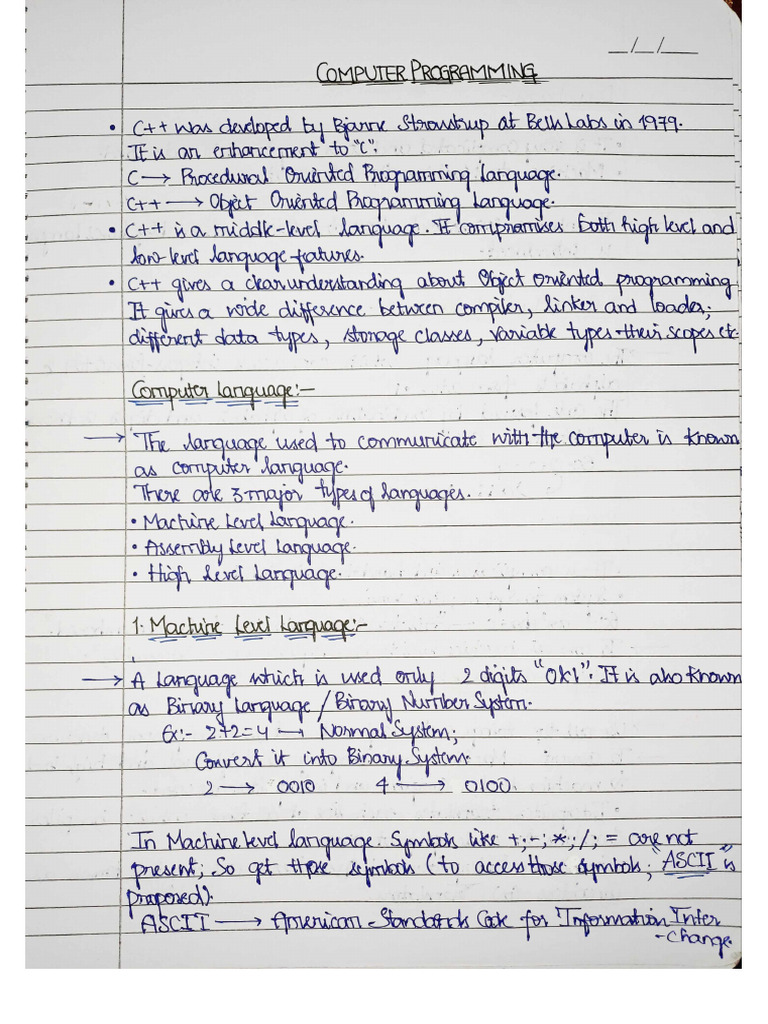 __/__/____
COMPUTER PROGRAMMING
• C++ was developed by Bjarne Stroustrup at Bell Labs in 1979.
It is an enhancement to "C".
C → Procedural Oriented Programming Language.
C++ → Object Oriented Programming Language.
• C++ is a middle-level language. It compromises both high level and
low-level language features.
• C++ gives a clear understanding about Object oriented programming
It gives a wide difference between compiler, linker and loader;
different data types, storage classes, variable types their scopes etc.
Computer Language:-
→ The language used to communicate with the computer is known
as computer language.
There are 3 major types of languages.
• Machine Level Language.
• Assembly Level Language.
• High Level Language.
1. Machine Level Language:-
→ A Language which is used only 2 digits "0&1". It is also known
as Binary Language / Binary Number System.
Ex:- 2+2=4 → Normal System;
Convert it into Binary System.
2 → 0010 4 → 0100.
In Machine level language. Symbols like +; -; *; /; = are not
present; So get those symbols (to access those symbols; "ASCII" is
proposed).
ASCII → American-Standards Code for Information Inter
-change.